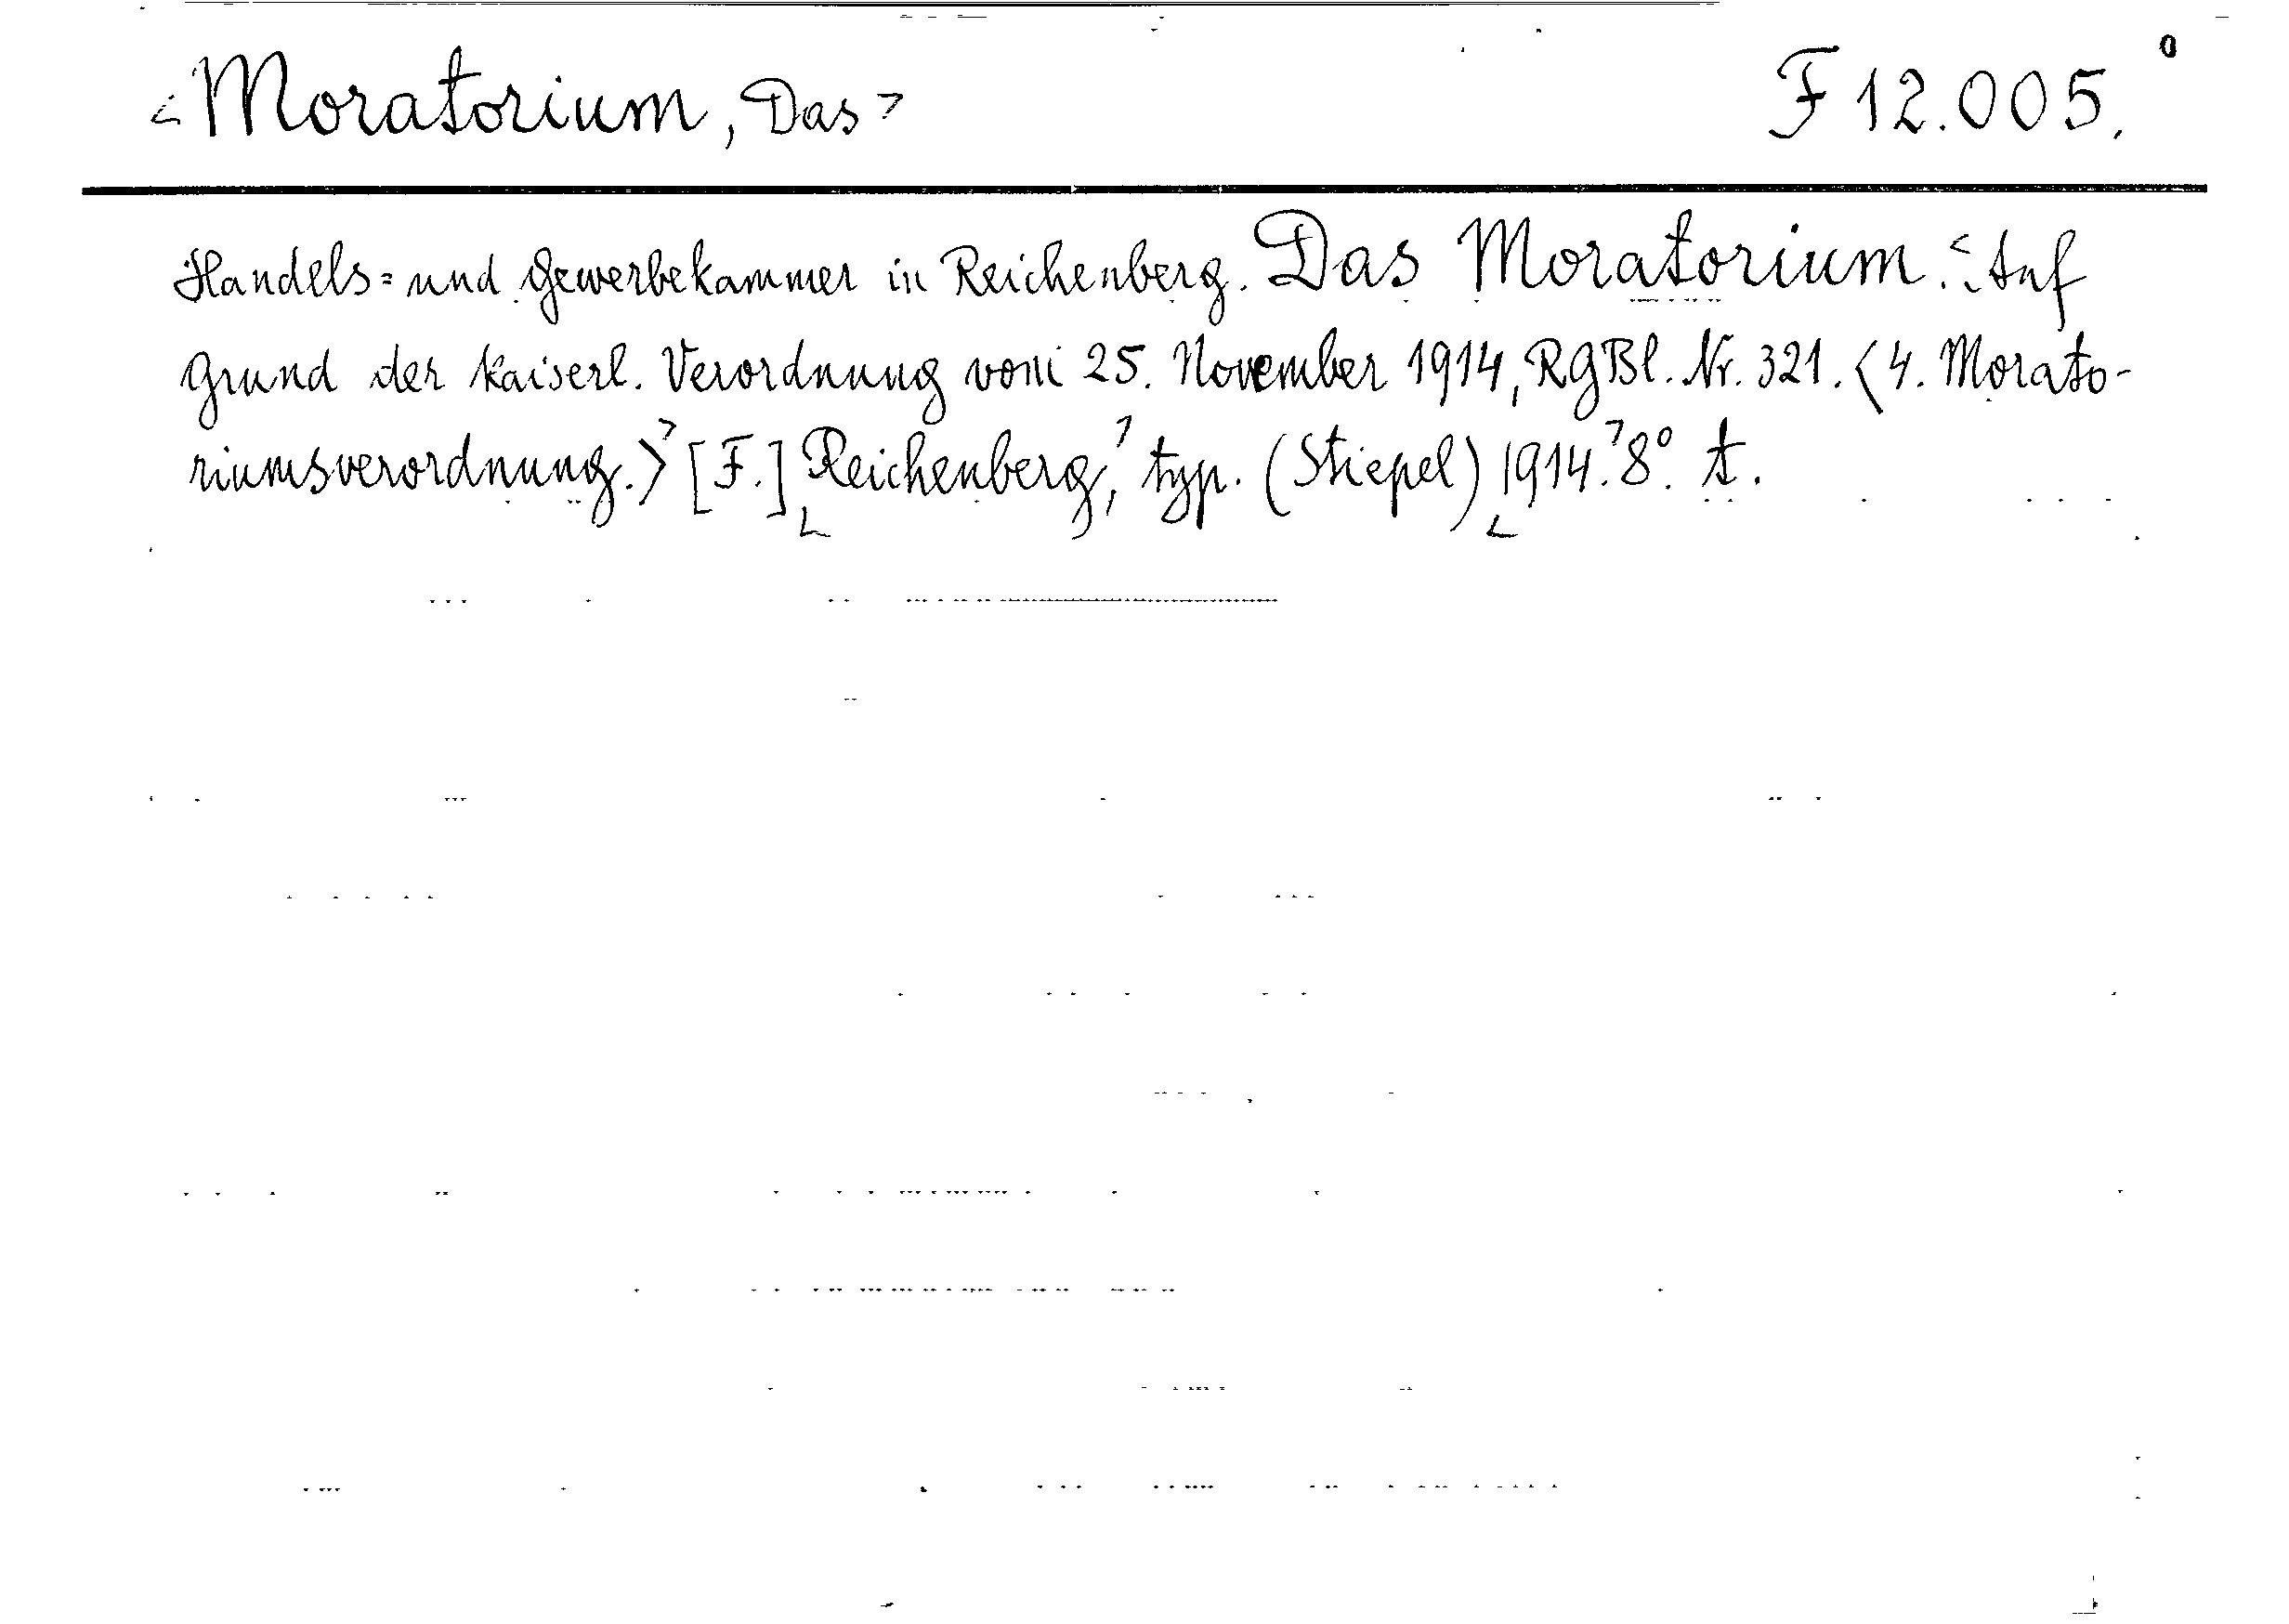 <Moratorium, Das> F 12.005.
Handels= und Gewerbekammer in Reichenberg. Das Moratorium. <Auf
Grund der kaiserl. Verordnung vom 25. November 1914, RGBl. Nr. 321. <4. Morato-
riumsverordnung.>> [F.] Reichenberg, typ. (Stiepel) 1914. 8°. A.